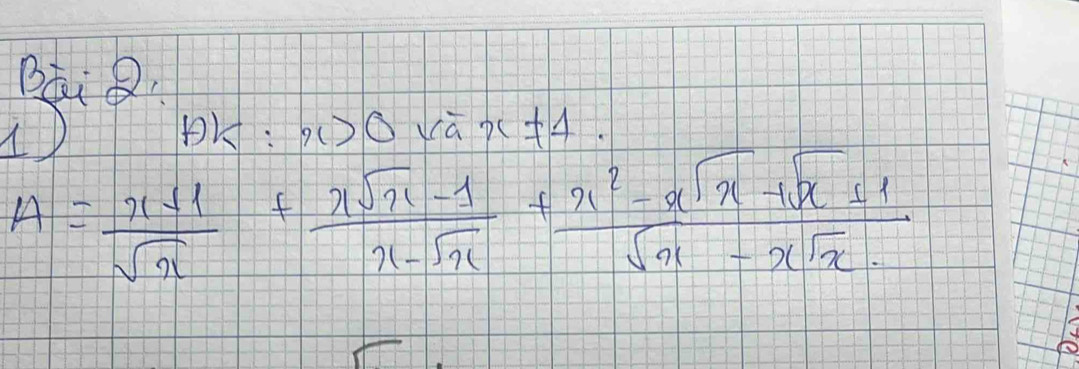 Bài 2:
1) ĐK : x > 0 và x ≠ 1.
A = (x + 1)/√x + (x√x - 1)/(x - √x) + (x² - x√x + √x + 1)/(√x - x√x).